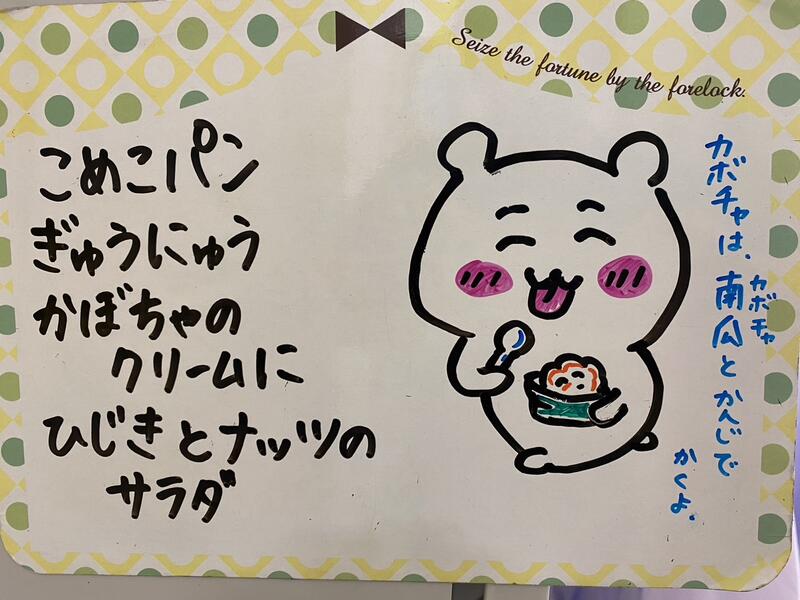 Seize the fortune by the forelock.
こめこパン
ぎゅうにゅう
かぼちゃの
クリームに
ひじきとナッツの
サラダ
カボチャは、南瓜とかんじで
カボチャ
かくよ。